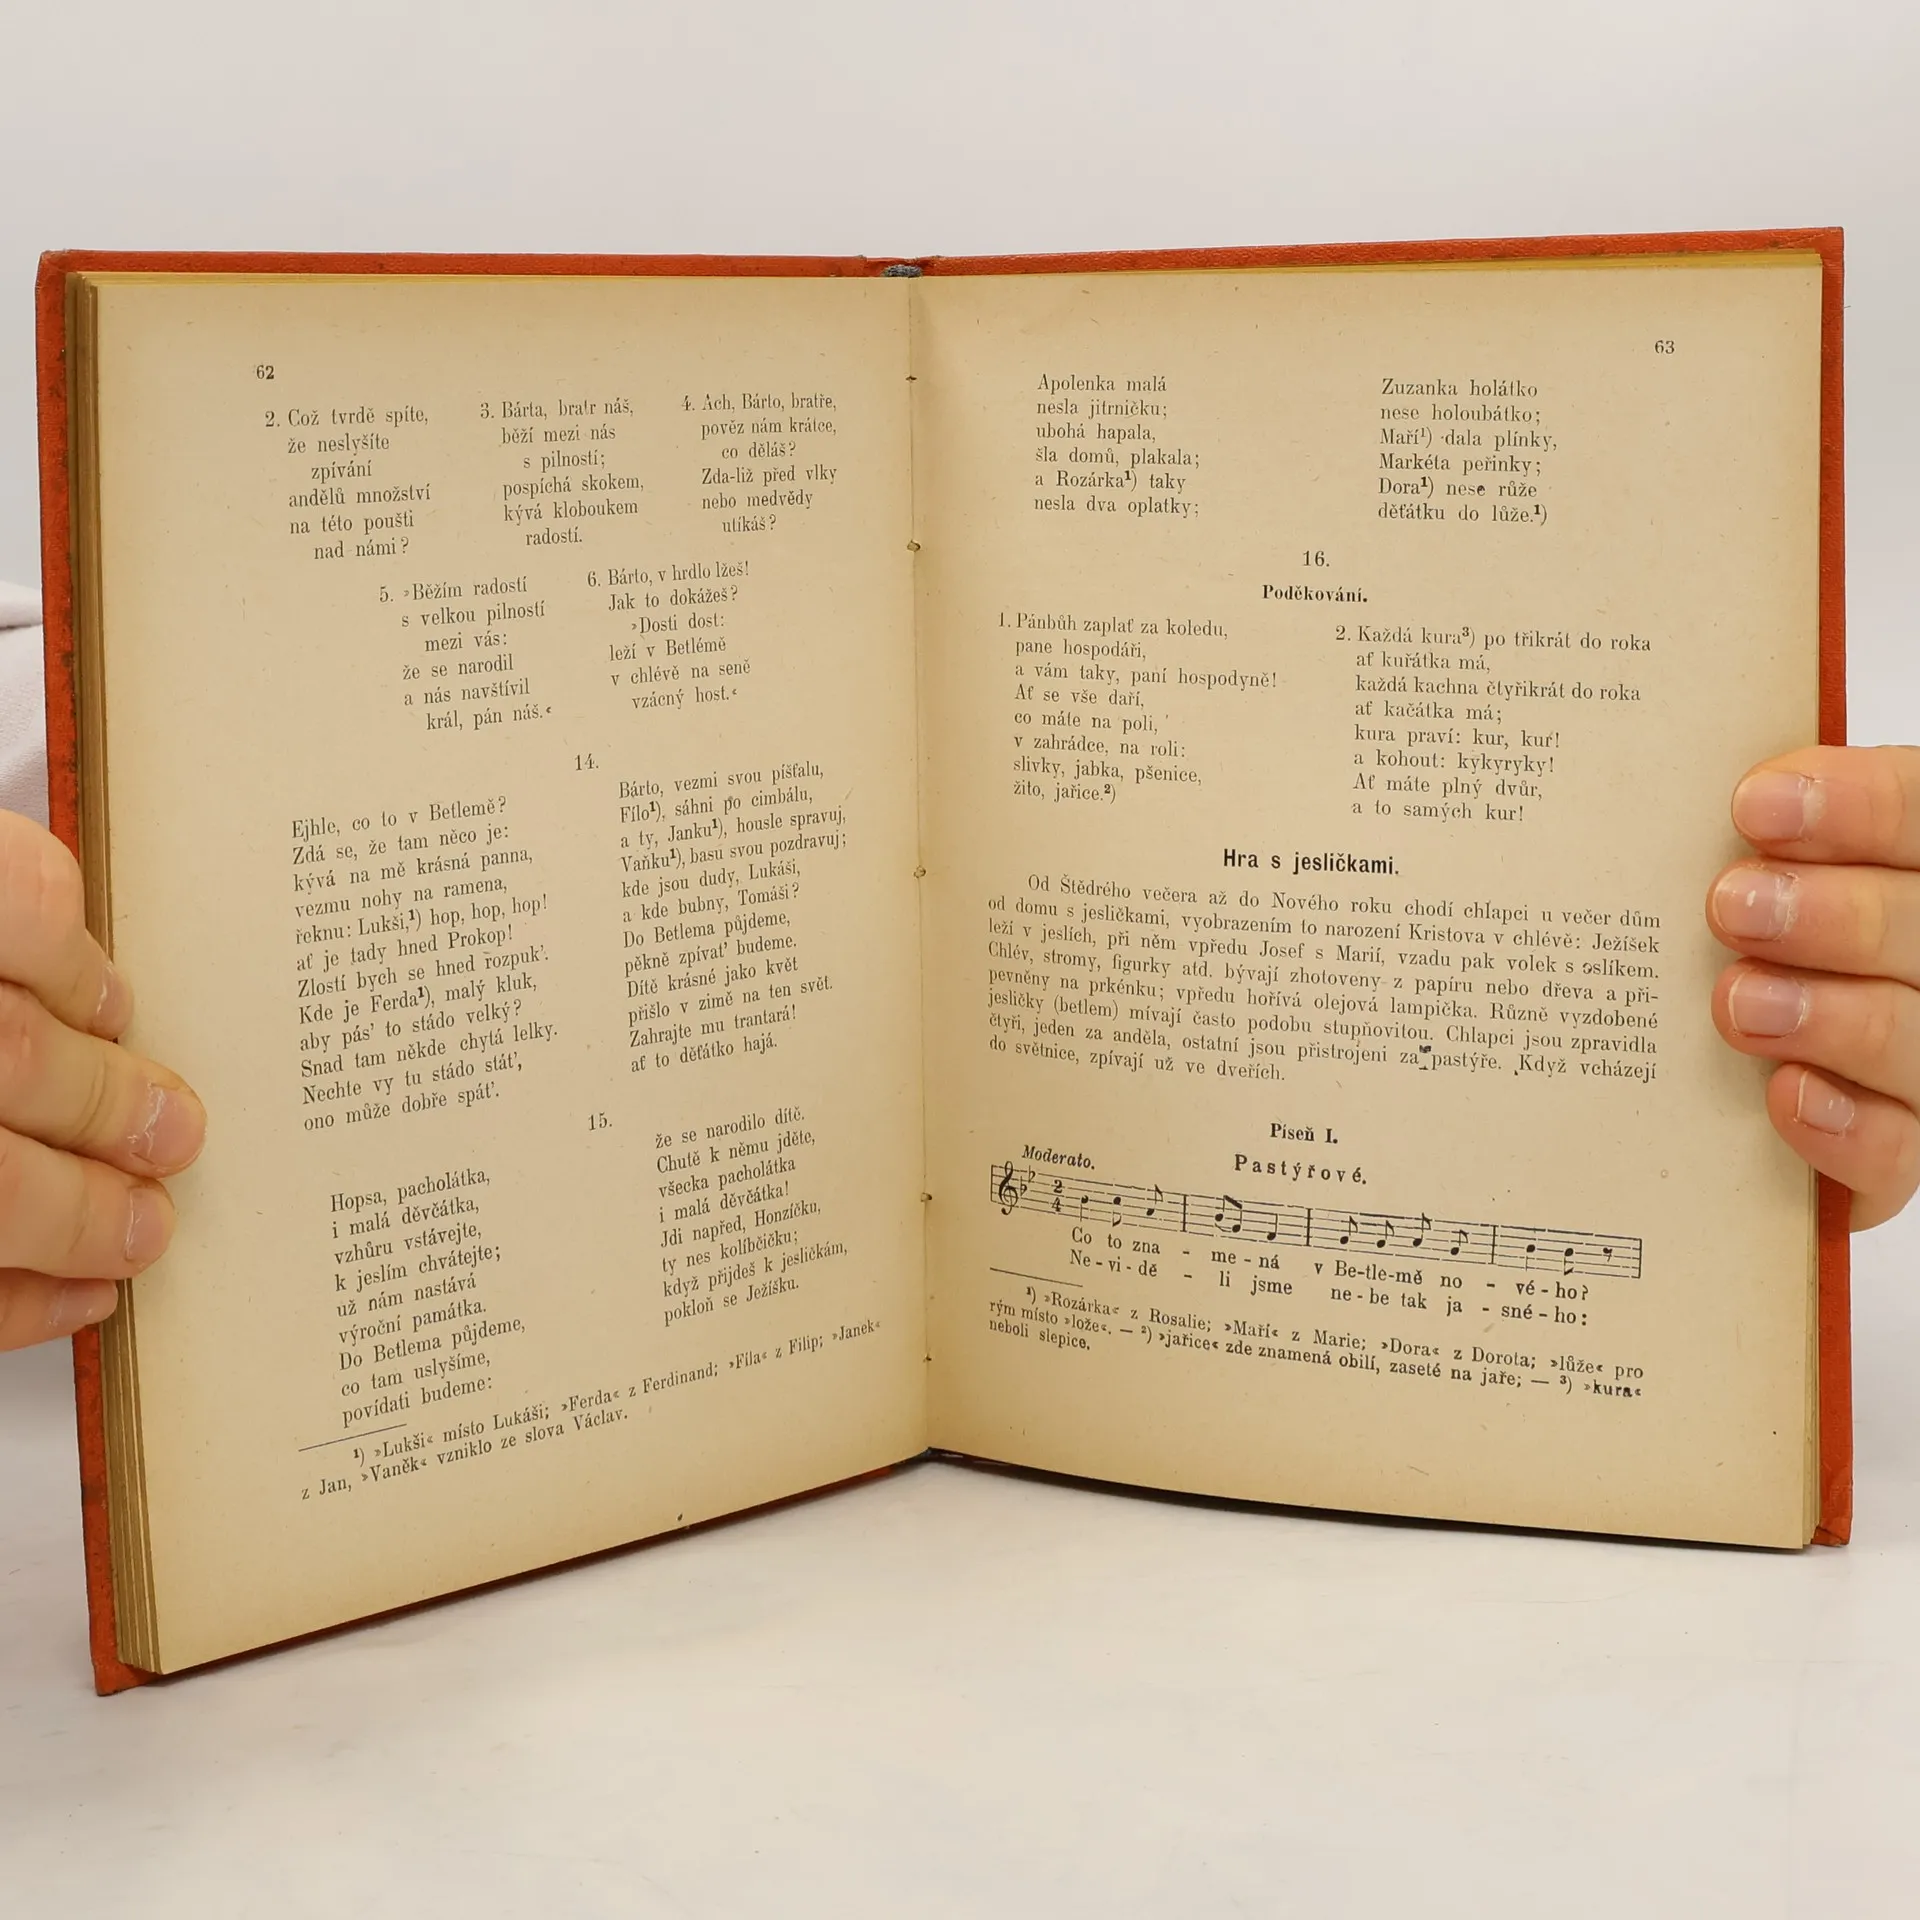 62
2. Což tvrdě spíte,
že neslyšíte
zpívání
andělů množství
na této poušti
nad námi?
3. Bárta, bratr náš,
běží mezi nás
s pilností;
pospíchá skokem,
kývá kloboukem
radostí.
4. Ach, Bárto, bratře,
pověz nám krátce,
co děláš?
Zda-liž před vlky
nebo medvědy
utíkáš?
5. »Běžím radostí
s velkou pilností
mezi vás:
že se narodil
a nás navštívil
král, pán náš.«
6. Bárto, v hrdlo lžeš!
Jak to dokážeš?
»Dosti dost:
leží v Betlémě
v chlévě na seně
vzácný host.«
14.
Ejhle, co to v Betlemě?
Zdá se, že tam něco je:
kývá na mě krásná panna,
vezmu nohy na ramena,
řeknu: Lukši,¹) hop, hop, hop!
ať je tady hned Prokop!
Zlostí bych se hned rozpuk'.
Kde je Ferda¹), malý kluk,
aby pás' to stádo velký?
Snad tam někde chytá lelky.
Nechte vy tu stádo stát',
ono může dobře spát'.
Bárto, vezmi svou píšťalu,
Fílo¹), sáhni po cimbálu,
a ty, Janku¹), housle spravuj,
Vaňku¹), basu svou pozdravuj;
kde jsou dudy, Lukáši,
a kde bubny, Tomáši?
Do Betlema půjdeme,
pěkně zpívat' budeme.
Dítě krásné jako květ
přišlo v zimě na ten svět.
Zahrajte mu trantará!
ať to děťátko hajá.
15.
Hopsa, pacholátka,
i malá děvčátka,
vzhůru vstávejte,
k jeslím chvátejte;
už nám nastává
výroční památka.
Do Betlema půjdeme,
co tam uslyšíme,
povídati budeme:
že se narodilo dítě.
Chutě k němu jděte,
všecka pacholátka
i malá děvčátka!
Jdi napřed, Honzíčku,
ty nes kolíbčičku;
když přijdeš k jesličkám,
pokloň se Ježíšku.
¹) »Lukši« místo Lukáši; »Ferda« z Ferdinand; »Fíla« z Filip; »Janek«
z Jan, »Vaněk« vzniklo ze slova Václav.
63
Apolenka malá
nesla jitrničku;
ubohá hapala,
šla domů, plakala;
a Rozárka¹) taky
nesla dva oplatky;
Zuzanka holátko
nese holoubátko;
Maří¹) dala plínky,
Markéta peřinky;
Dora¹) nese růže
děťátku do lůže.¹)
16.
Poděkování.
1. Pánbůh zaplať za koledu,
pane hospodáři,
a vám taky, paní hospodyně!
Ať se vše daří,
co máte na poli,
v zahrádce, na roli:
slivky, jabka, pšenice,
žito, jařice.²)
2. Každá kura³) po třikrát do roka
ať kuřátka má,
každá kachna čtyřikrát do roka
ať kačátka má;
kura praví: kur, kur!
a kohout: kykyryky!
Ať máte plný dvůr,
a to samých kur!
Hra s jesličkami.
Od Štědrého večera až do Nového roku chodí chlapci u večer dům
od domu s jesličkami, vyobrazením to narození Kristova v chlévě: Ježíšek
leží v jeslích, při něm vpředu Josef s Marií, vzadu pak volek s oslíkem.
Chlév, stromy, figurky atd. bývají zhotoveny z papíru nebo dřeva a při-
pevněny na prkénku; vpředu hořívá olejová lampička. Různě vyzdobené
jesličky (betlem) mívají často podobu stupňovitou. Chlapci jsou zpravidla
čtyři, jeden za anděla, ostatní jsou přistrojeni za pastýře. Když vcházejí
do světnice, zpívají už ve dveřích.
Píseň I.
Pastýřové.
Moderato.
2
4
Co to zna - me - ná v Be-tle-mě no - vé - ho?
Ne - vi - dě - li jsme ne - be tak ja - sné - ho:
¹) »Rozárka« z Rosalie; »Maří« z Marie; »Dora« z Dorota; »lůže« pro
rým místo »lože«. — ²) »jařice« zde znamená obilí, zaseté na jaře; — ³) »kura«
neboli slepice.